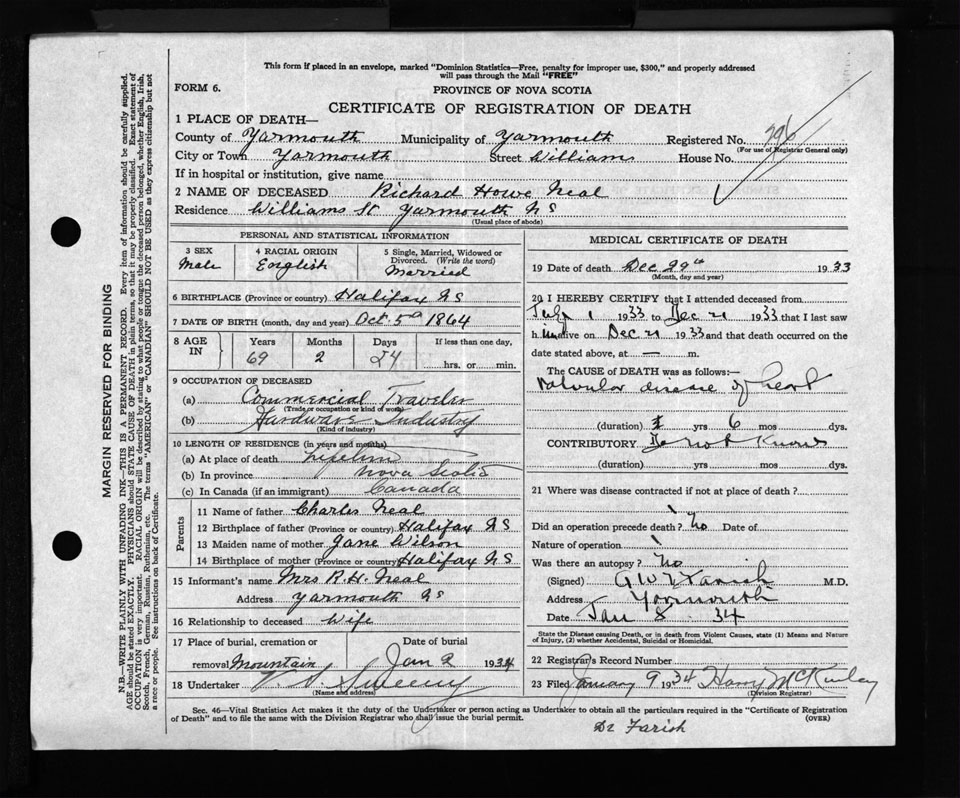 This form if placed in an envelope, marked "Dominion Statistics—Free, penalty for improper use, $300," and properly addressed
will pass through the Mail "FREE"
FORM 6.
PROVINCE OF NOVA SCOTIA
CERTIFICATE OF REGISTRATION OF DEATH
1 PLACE OF DEATH—
County of Yarmouth Municipality of Yarmouth Registered No. 796
(For use of Registrar General only)
City or Town Yarmouth Street Williams House No.
If in hospital or institution, give name
2 NAME OF DECEASED Richard Howe Neal
Residence Williams St Yarmouth NS
(Usual place of abode)
PERSONAL AND STATISTICAL INFORMATION
3 SEX Male
4 RACIAL ORIGIN English
5 Single, Married, Widowed or Divorced. (Write the word) Married
6 BIRTHPLACE (Province or country) Halifax NS
7 DATE OF BIRTH (month, day and year) Oct. 5th 1864
8 AGE IN Years Months Days If less than one day,
69 2 24 hrs. or min.
9 OCCUPATION OF DECEASED
(a) Commercial Traveler
(Trade or occupation or kind of work)
(b) Hardware Industry
(Kind of industry)
10 LENGTH OF RESIDENCE (in years and months)
(a) At place of death
(b) In province Nova Scotia
(c) In Canada (if an immigrant) Canada
Parents
11 Name of father Charles Neal
12 Birthplace of father (Province or country) Halifax NS
13 Maiden name of mother Jane Wilson
14 Birthplace of mother (Province or country) Halifax NS
15 Informant's name Mrs R.H. Neal
Address Yarmouth NS
16 Relationship to deceased Wife
17 Place of burial, cremation or removal Mountain
Date of burial Jan 2 1934
18 Undertaker V. S. Sweeny
(Name and address)
MEDICAL CERTIFICATE OF DEATH
19 Date of death Dec 29th 1933
(Month, day and year)
20 I HEREBY CERTIFY that I attended deceased from
July 1 1933 to Dec 21 1933 that I last saw
him alive on Dec 21 1933 and that death occurred on the
date stated above, at — m.
The CAUSE OF DEATH was as follows:—
Valvular disease of heart
(duration) yrs 6 mos dys.
CONTRIBUTORY not Know
(duration) yrs mos dys.
21 Where was disease contracted if not at place of death?
Did an operation precede death? No Date of
Nature of operation
Was there an autopsy? No
(Signed) G W T Farish M.D.
Address Yarmouth
Date Jan 8. 34
State the Disease causing Death, or in death from Violent Causes, state (1) Means and Nature
of Injury, (2) whether Accidental, Suicidal or Homicidal.
22 Registrar's Record Number
23 Filed January 9 1934 Harry McKinley
(Division Registrar)
Sec. 46—Vital Statistics Act makes it the duty of the Undertaker or person acting as Undertaker to obtain all the particulars required in the "Certificate of Registration
of Death" and to file the same with the Division Registrar who shall issue the burial permit. (OVER)
Dr Farish
MARGIN RESERVED FOR BINDING
N.B.—WRITE PLAINLY WITH UNFADING INK—THIS IS A PERMANENT RECORD. Every item of information should be carefully supplied.
AGE should be stated EXACTLY. PHYSICIANS should STATE CAUSE OF DEATH in plain terms, so that it may be properly classified. Exact statement of
OCCUPATION is very important. RACIAL ORIGIN will be described by stating to what people or tongue the deceased person belonged, whether English, Irish,
Scotch, French, German, Russian, Ruthenian, etc. The terms "AMERICAN" or "CANADIAN" SHOULD NOT BE USED as they express citizenship but not
a race or people. See instructions on back of Certificate.